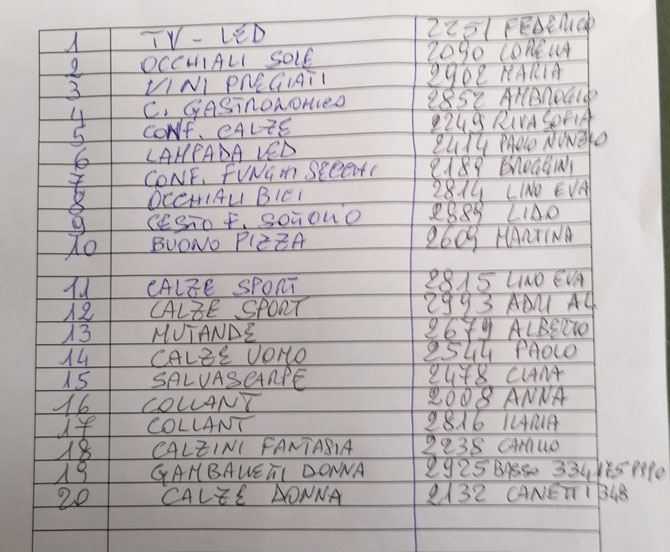 1 TV - LED 2251 FEDERICO
2 OCCHIALI SOLE 2090 LORENA
3 VINI PREGIATI 2902 MARIA
4 C. GASTRONOMICO 2852 AMBROGIO
5 CONF. CALZE 2249 RIVA SOFIA
6 LAMPADA LED 2414 PAOLO NUNZIO
7 CONF. FUNGHI SECCHI 2189 BROGGINI
8 OCCHIALI BICI 2814 LINO EVA
9 CESTO F. SOTTOLIO 2889 LIDO
10 BUONO PIZZA 2609 MARTINA
11 CALZE SPORT 2815 LINO EVA
12 CALZE SPORT 2993 ADRI AL
13 MUTANDE 2679 ALBERTO
14 CALZE UOMO 2544 PAOLO
15 SALVASCARPE 2478 CLARA
16 COLLANT 2008 ANNA
17 COLLANT 2816 ILARIA
18 CALZINI FANTASIA 2238 CAMILLO
19 GAMBALETTI DONNA 2925 BASSO 334175
20 CALZE DONNA 2132 CANETTI 348